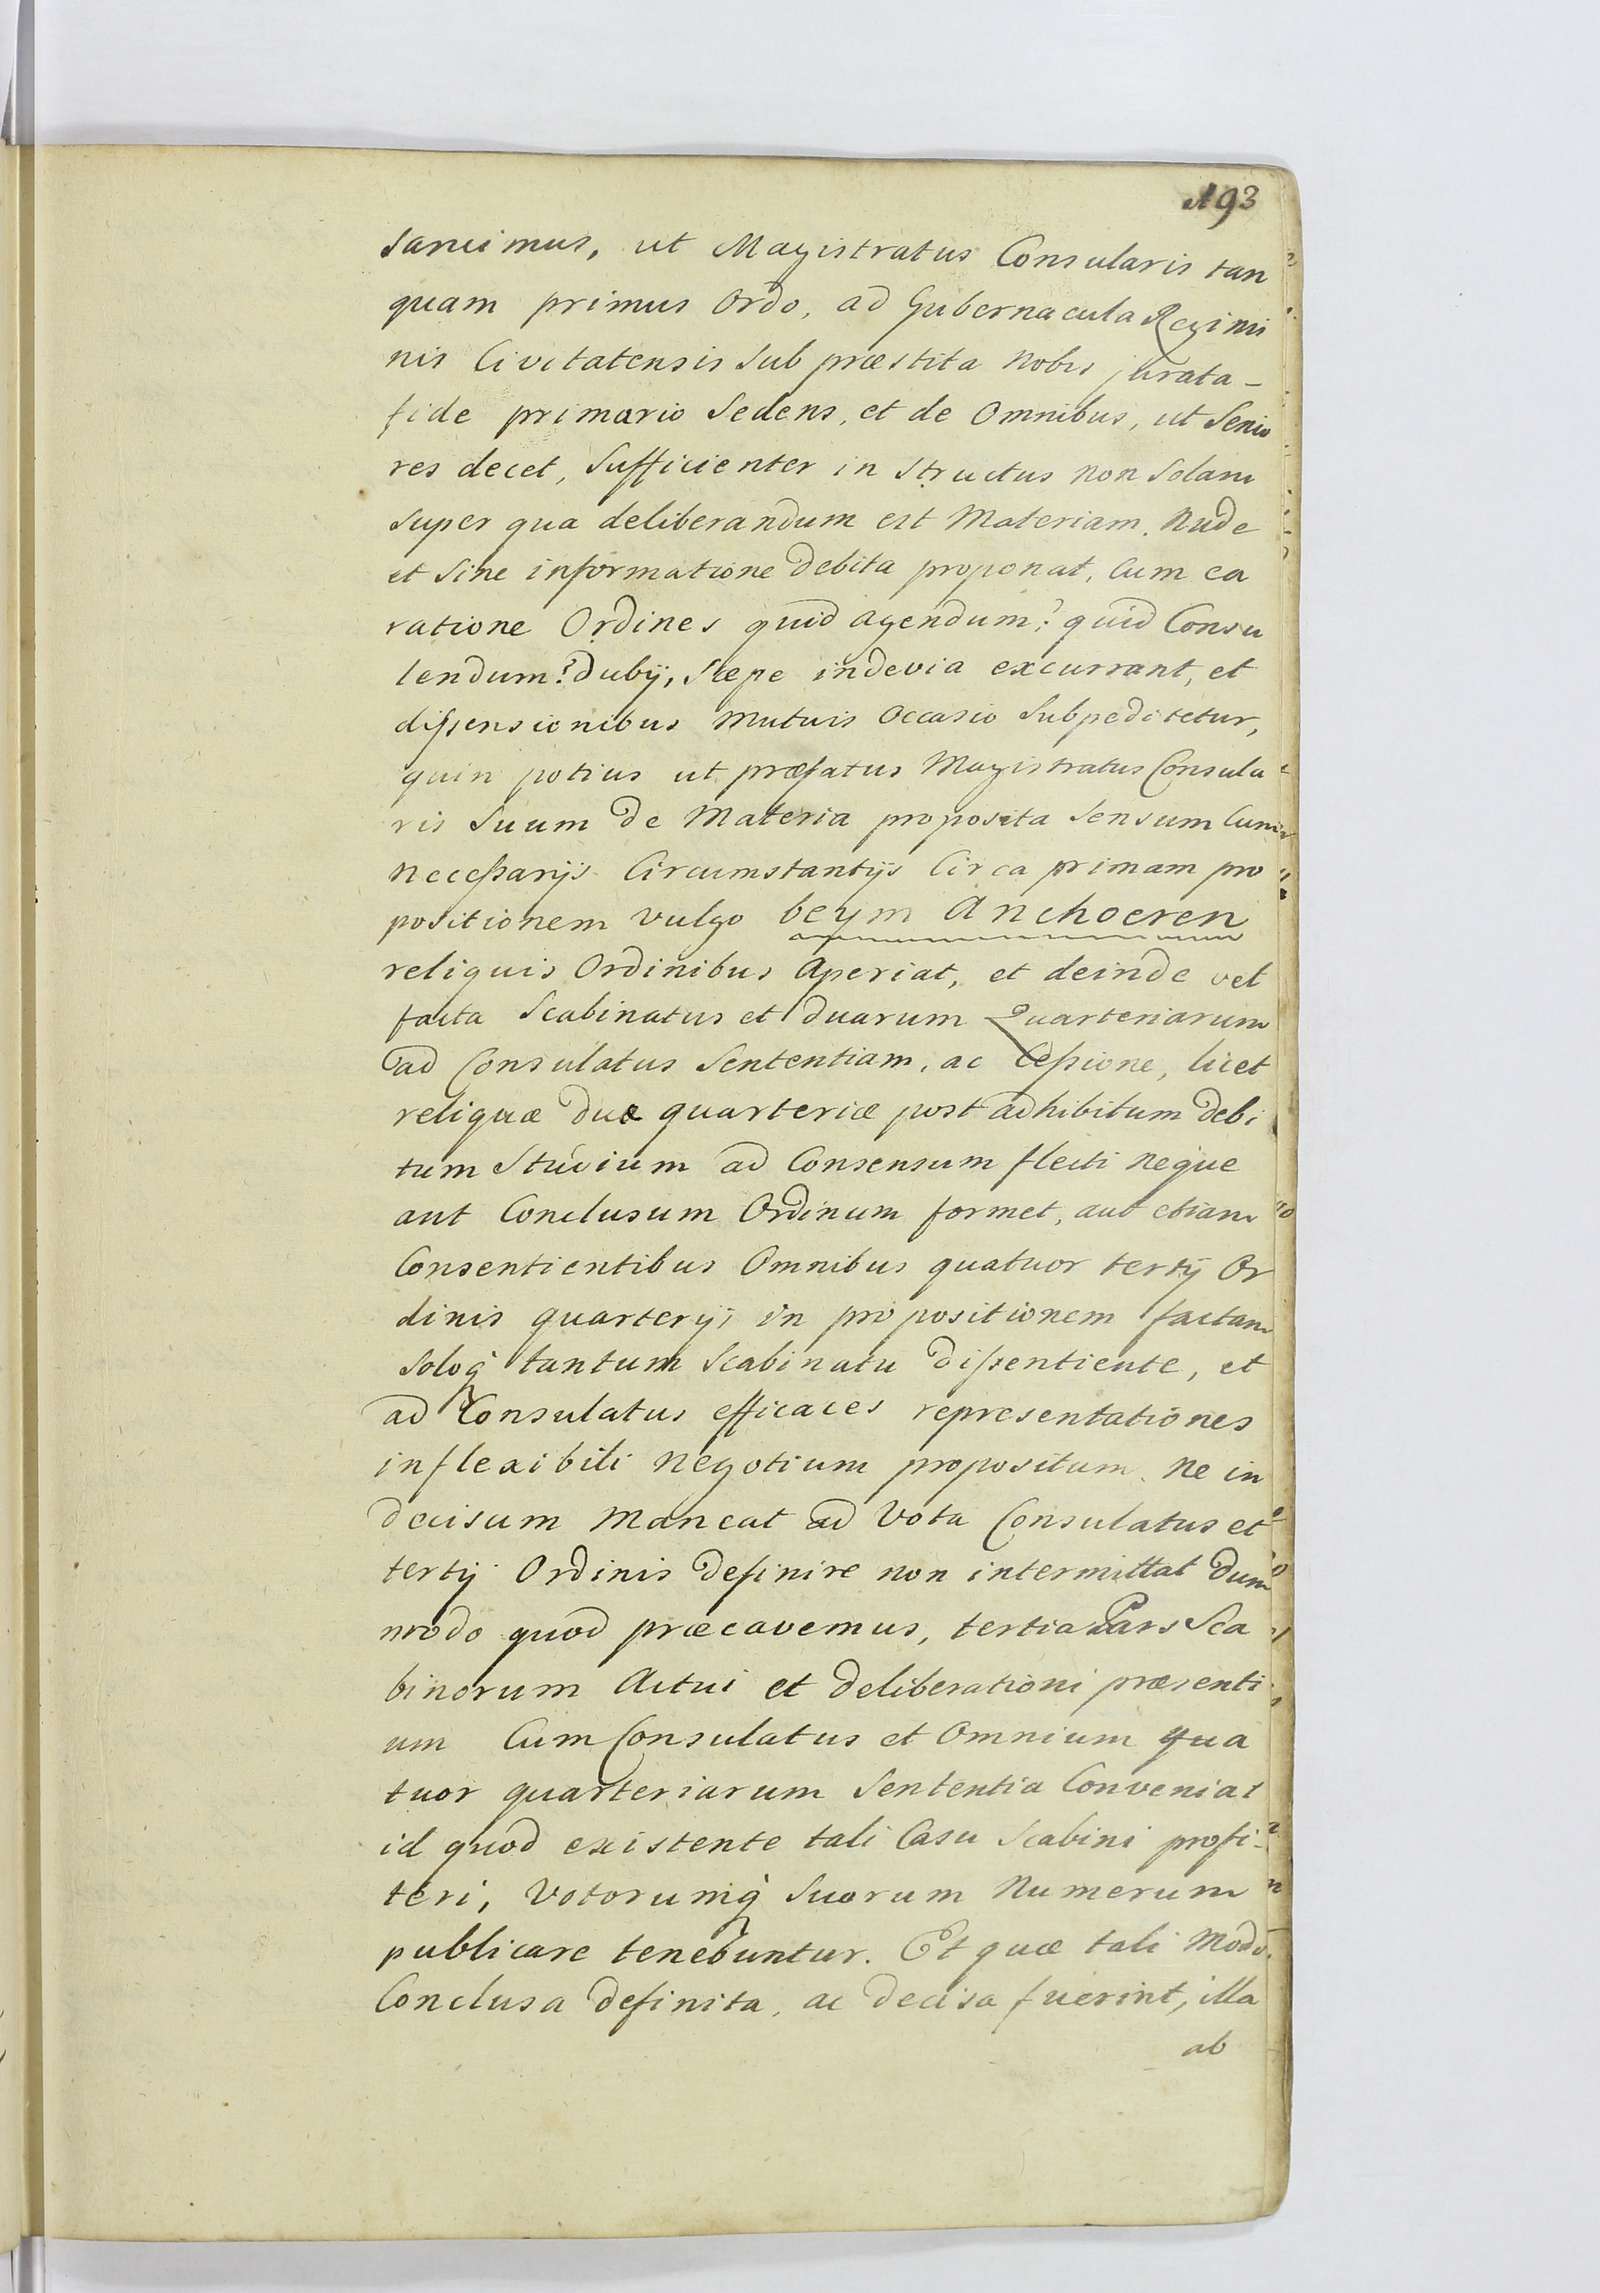 193
sancimus, ut Magistratus Consularis tan
quam primus Ordo, ad Gubernacula Regimi
nis Civitatensis sub præstita Nobis jurata-
fide primario Sedens, et de Omnibus, ut Senio
res decet, Sufficienter in structus non Solam
super qua deliberandum est Materiam. Nude
et Sine informatione debita proponat, Cum ea
ratione Ordines quid agendum? quid Consu
lendum? dubÿ, Sæpe indevia excurrant, et
dißensionibus Mutuis Occasio Subpeditetur,
quin potius ut præfatus Magistratus Consula
ris Suum de Materia proposita Sensum Cum
Neceßarÿs Circumstantÿs Circa primam pro
positionem vulgo beym Anchoeren
reliquis Ordinibus Aperiat, et deinde vel
facta Scabinatus et duarum Quarteriarum
ad Consulatus Sententiam, ac ceßione, licet
reliquæ duæ quarteriæ post adhibitum debi
tum Studium ad Consensum flecti neque
ant Conclusum Ordinum formet, aut etiam
Consentientibus Omnibus quatuor tertÿ Or
dinis quarterÿs in propositionem factam
Soloq́ tantum Scabinatu dißentiente, et
ad Consulatus efficaces representationes
inflexibili Negotium propositum. Ne in
decisum Maneat ad Vota Consulatus et
tertÿ Ordinis definire non intermittat Dum
modo quod præcavemus, tertia Pars Sca
binorum Actui et deliberationi præsenti
um Cum Consulatus et Omnium qua
tuor quarteriarum Sententia Conveniat
id quod existente tali Casu Scabini profi-
teri, Votorumq́ Suorum Numerum
publicare tenebuntur. Et quæ tali Modo
Conclusa definita, ac decisa fuerint, illa
ab